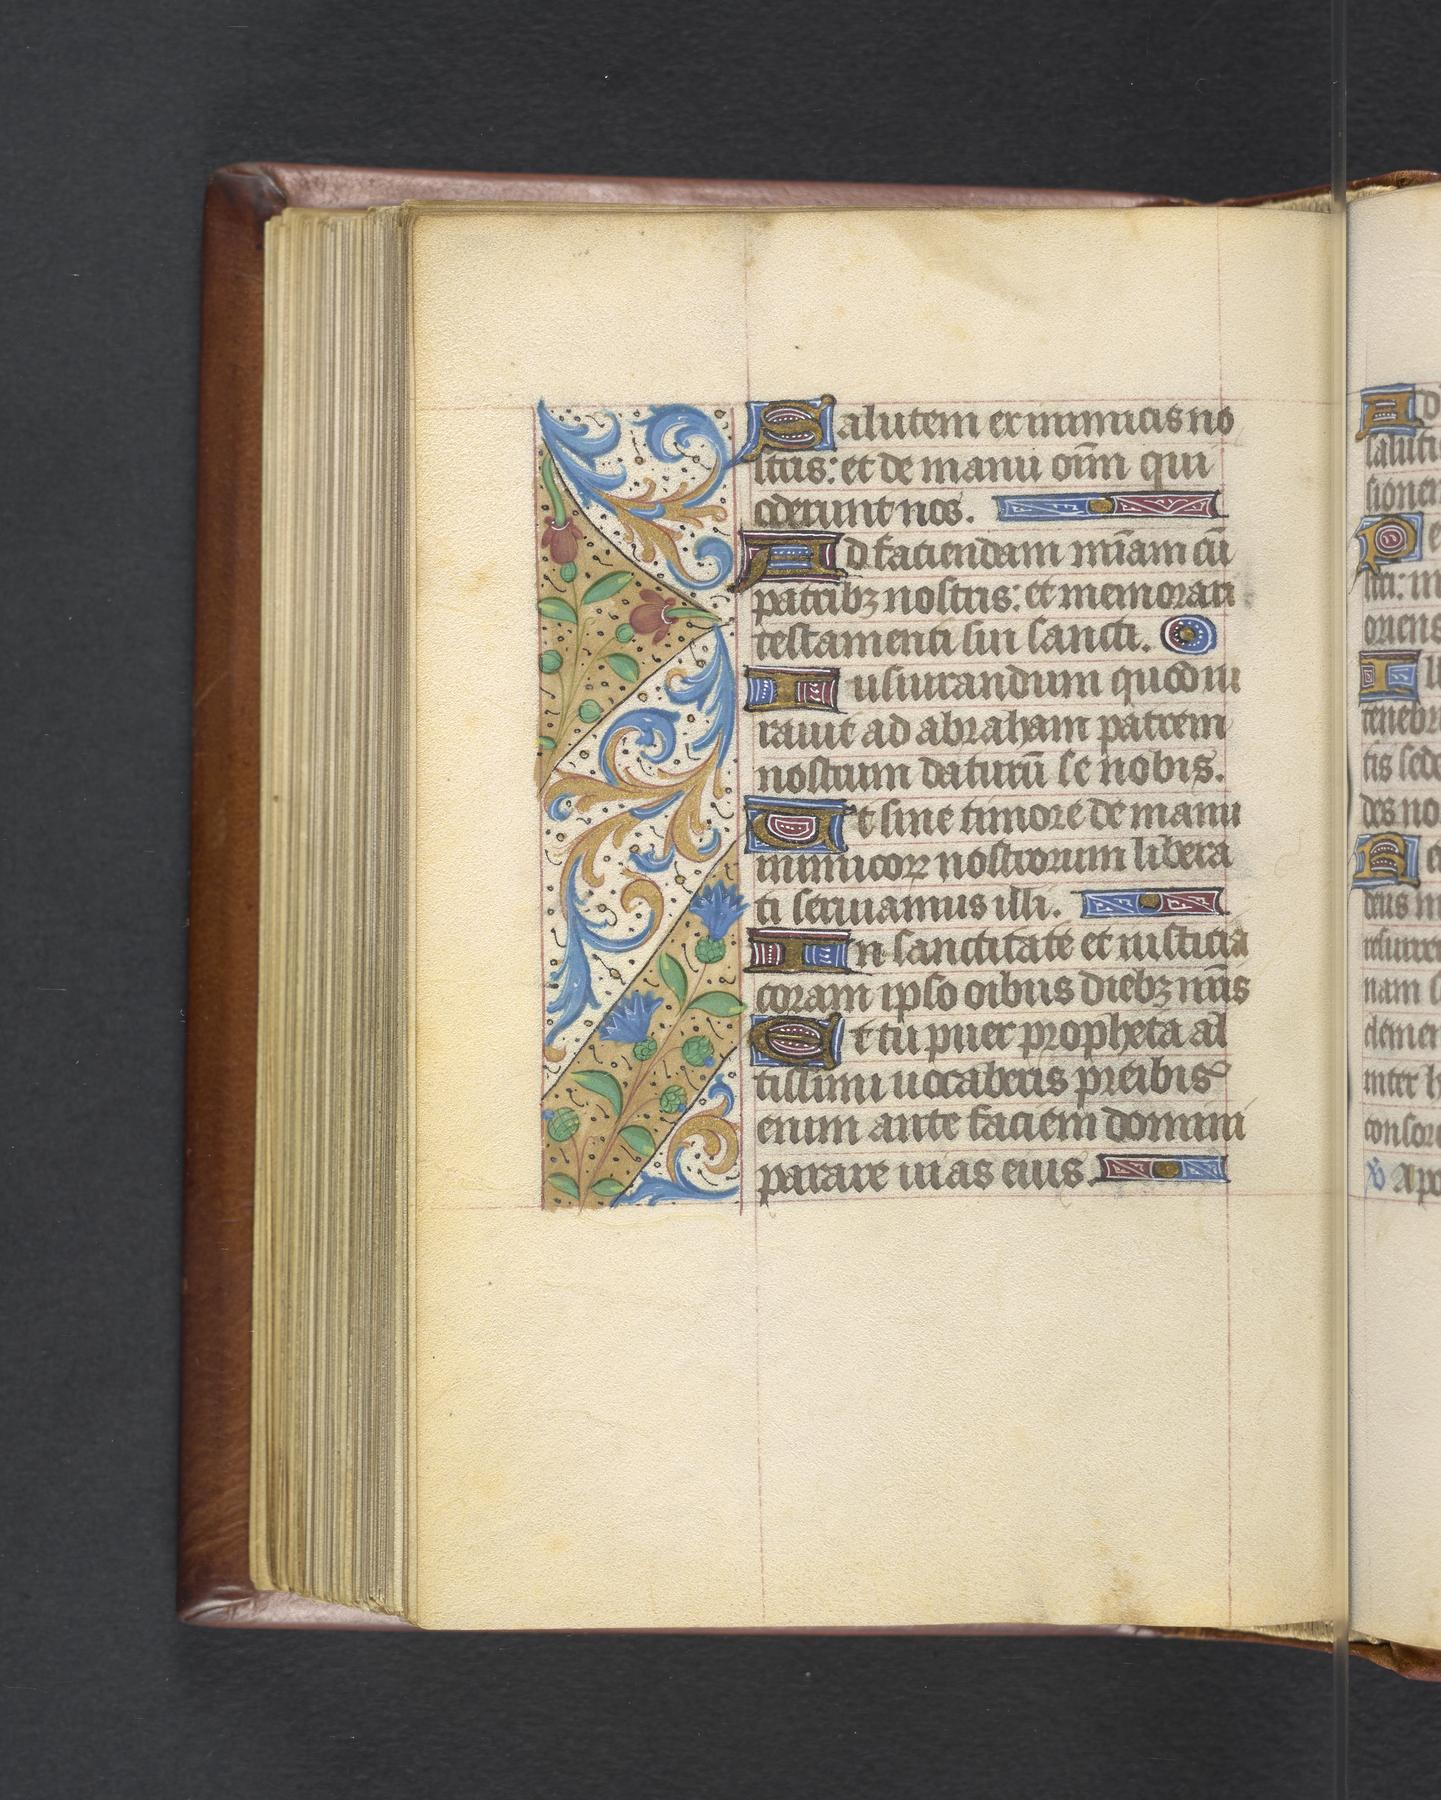 Salutem ex inimicis no
stris: et de manu oīm qui
oderunt nos.
Ad faciendam mīam cū
patribꝫ nostris: et memorari
testamenti sui sancti.
Iusiurandum quod iu
rauit ad abraham patrem
nostrum daturū se nobis.
Ut sine timore de manu
inimicoꝝ nostrorum libera
ti seruiamus illi.
In sanctitate et iusticia
coram ipso oībus diebꝫ nr̄is
Et tu puer propheta al
tissimi uocaberis preibis
enim ante faciem domini
parare uias eius.
Ad
saluti
sionem
Pe
stri: in
oriens
Ill
tenebri
tis sede
des no
Be
deus
nam
clemen
inter
consor
℣ Apo